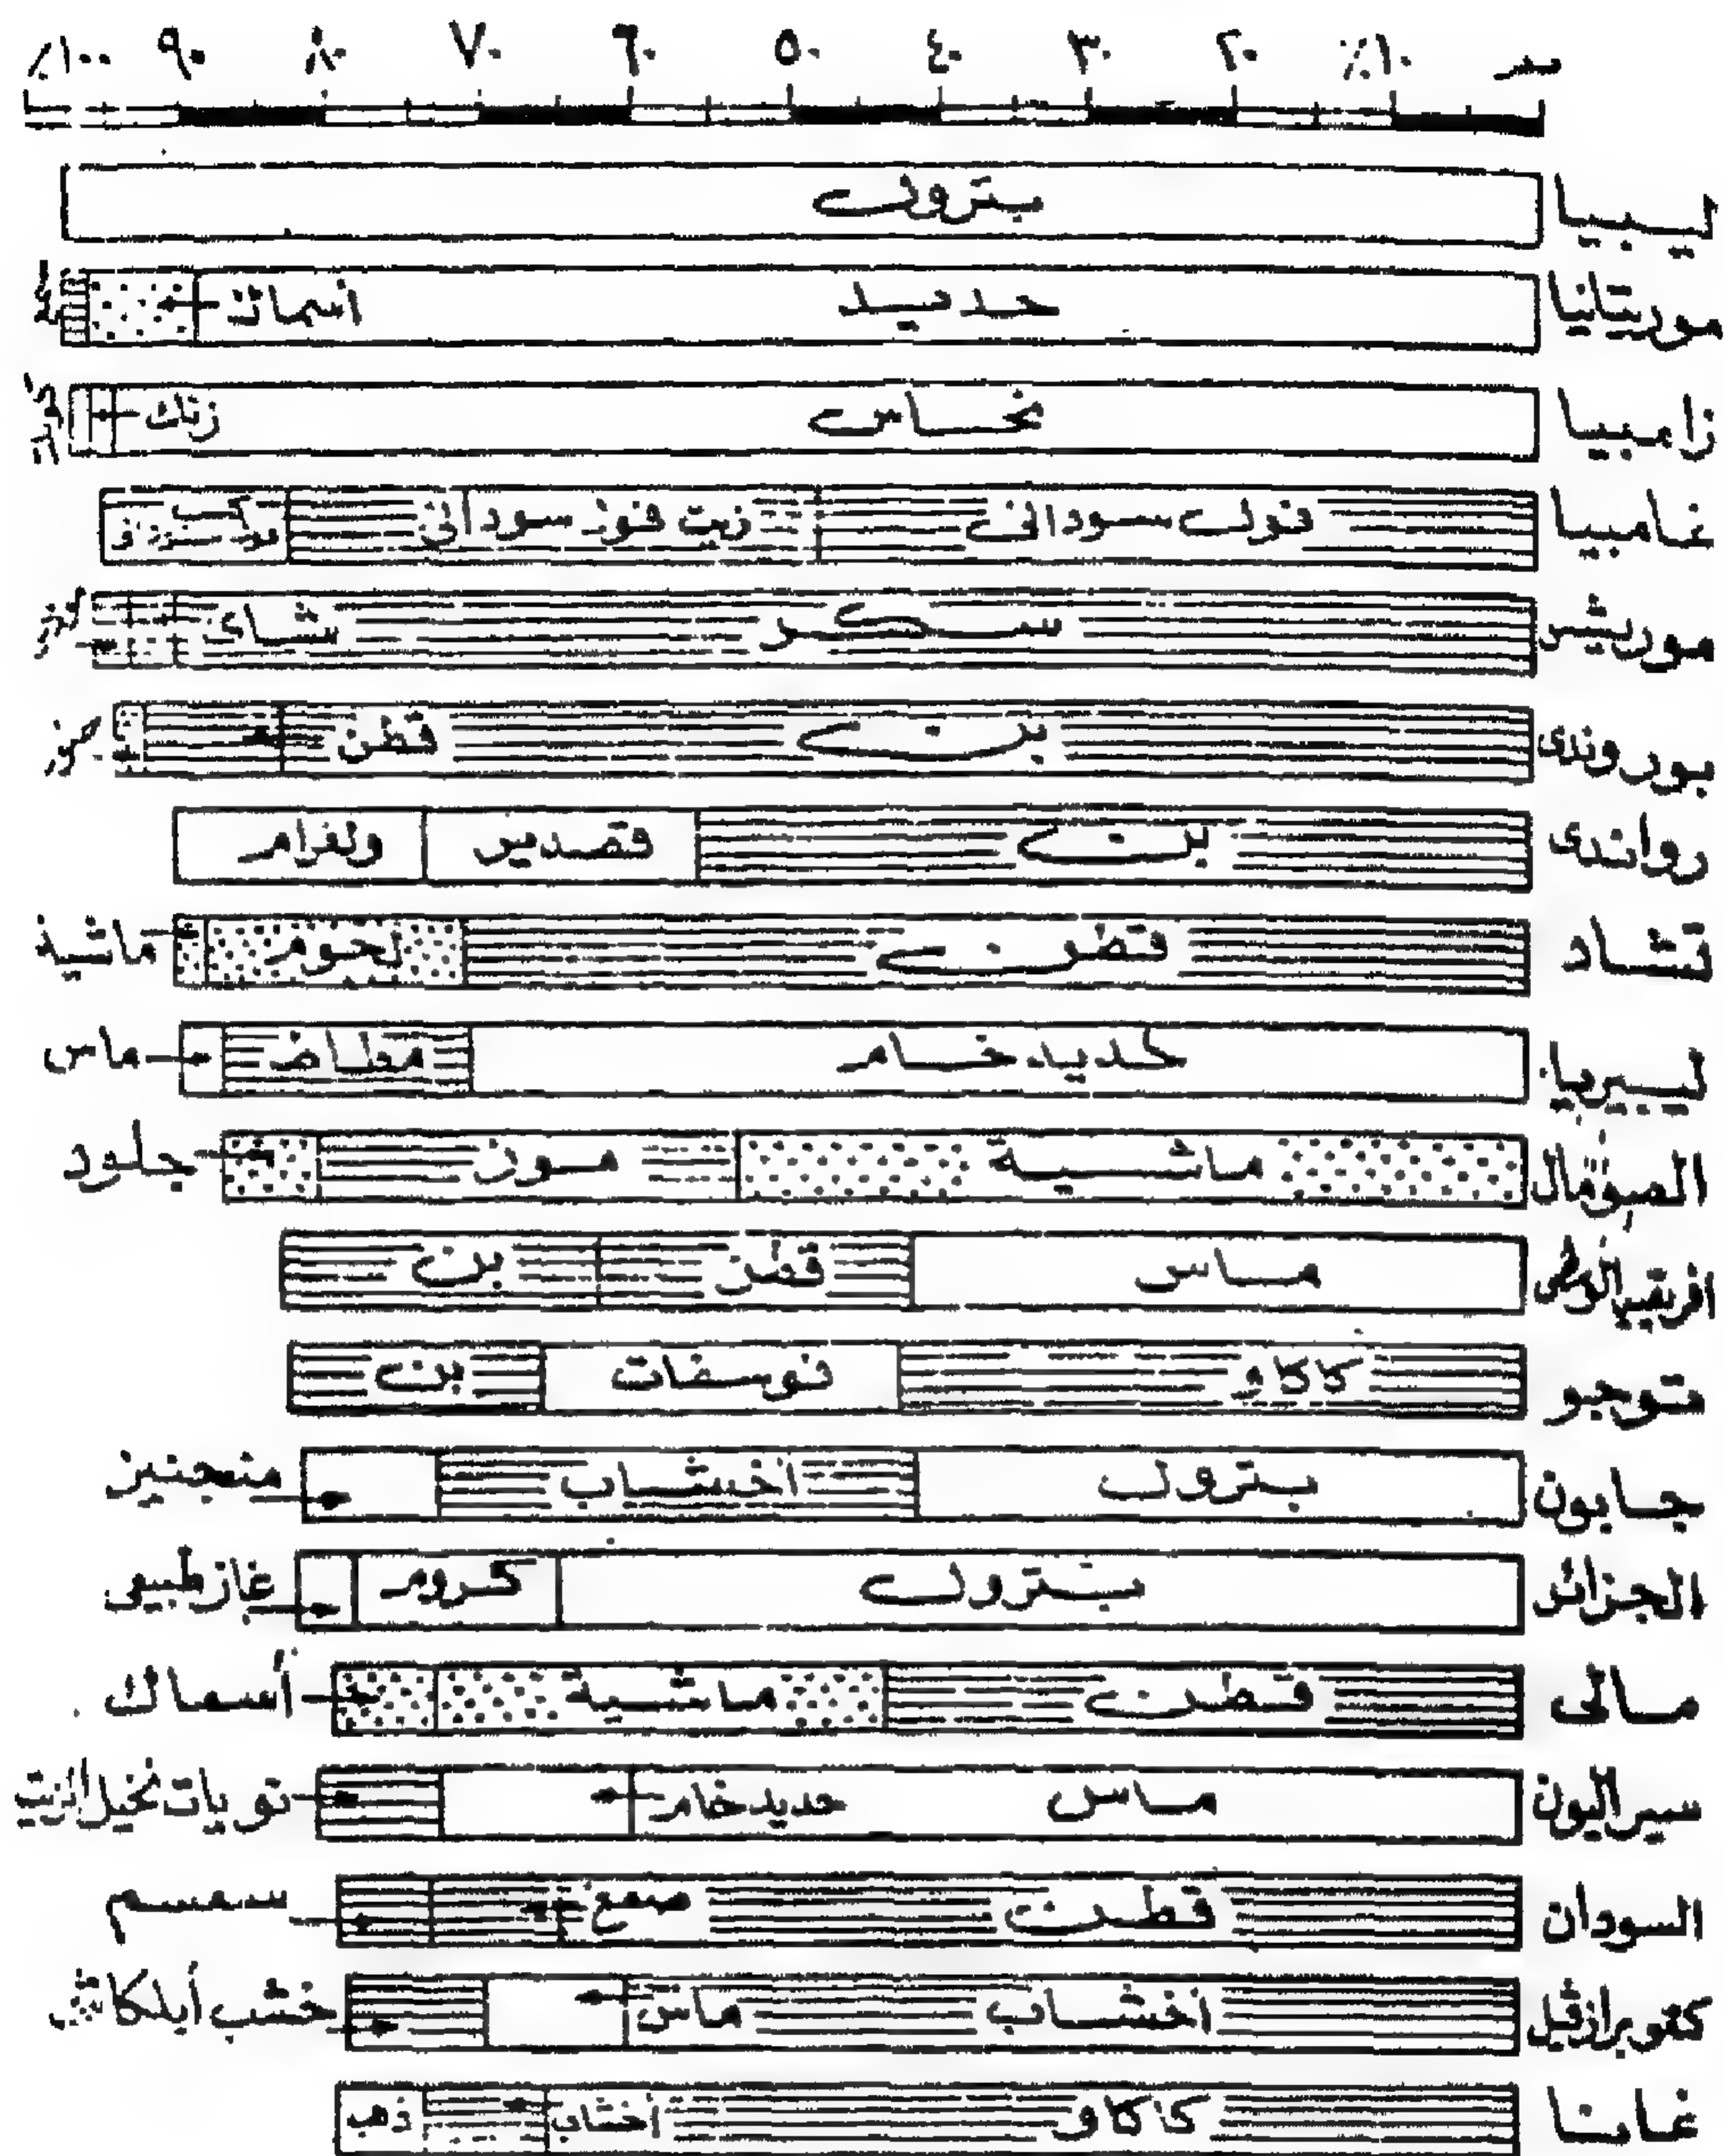 صفر ١٠٪ ٢٠ ٣٠ ٤٠ ٥٠ ٦٠ ٧٠ ٨٠ ٩٠ ١٠٠٪
ليبيا بترول
موريتانيا حديد أسماك
زامبيا نحاس زنك
غامبيا فول سودانى زيت فول سودانى كسب فول سودانى
موريشر سكر شاى
بوروندى بن قطن
رواندى بن قصدير ولفرام
تشاد قطن لحوم ماشية
ليبيريا حديد خام مطاط ماس
الصومال ماشية موز جلود
افريقيا الوسطى ماس قطن بن
توجو كاكاو فوسفات بن
جابون بترول أخشاب منجنيز
الجزائر بترول كروم غاز طبيعى
مالى قطن ماشية أسماك
سيراليون ماس حديد خام نويات نخيل الزيت
السودان قطن صمغ سمسم
كنغو برازفيل أخشاب ماس خشب أبلكاش
غانا كاكاو أخشاب ذهب